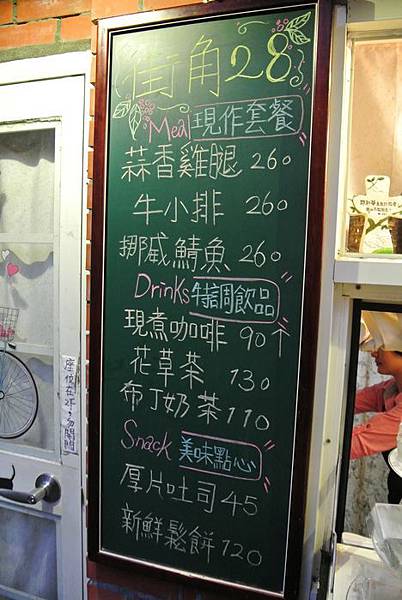 街角28
Meal 現作套餐
蒜香雞腿 260
牛小排 260
挪威鯖魚 260
Drinks 特調飲品
現煮咖啡 90↑
花草茶 130
布丁奶茶 110
Snack 美味點心
厚片吐司 45
新鮮鬆餅 120
座位在2F, 勿開門